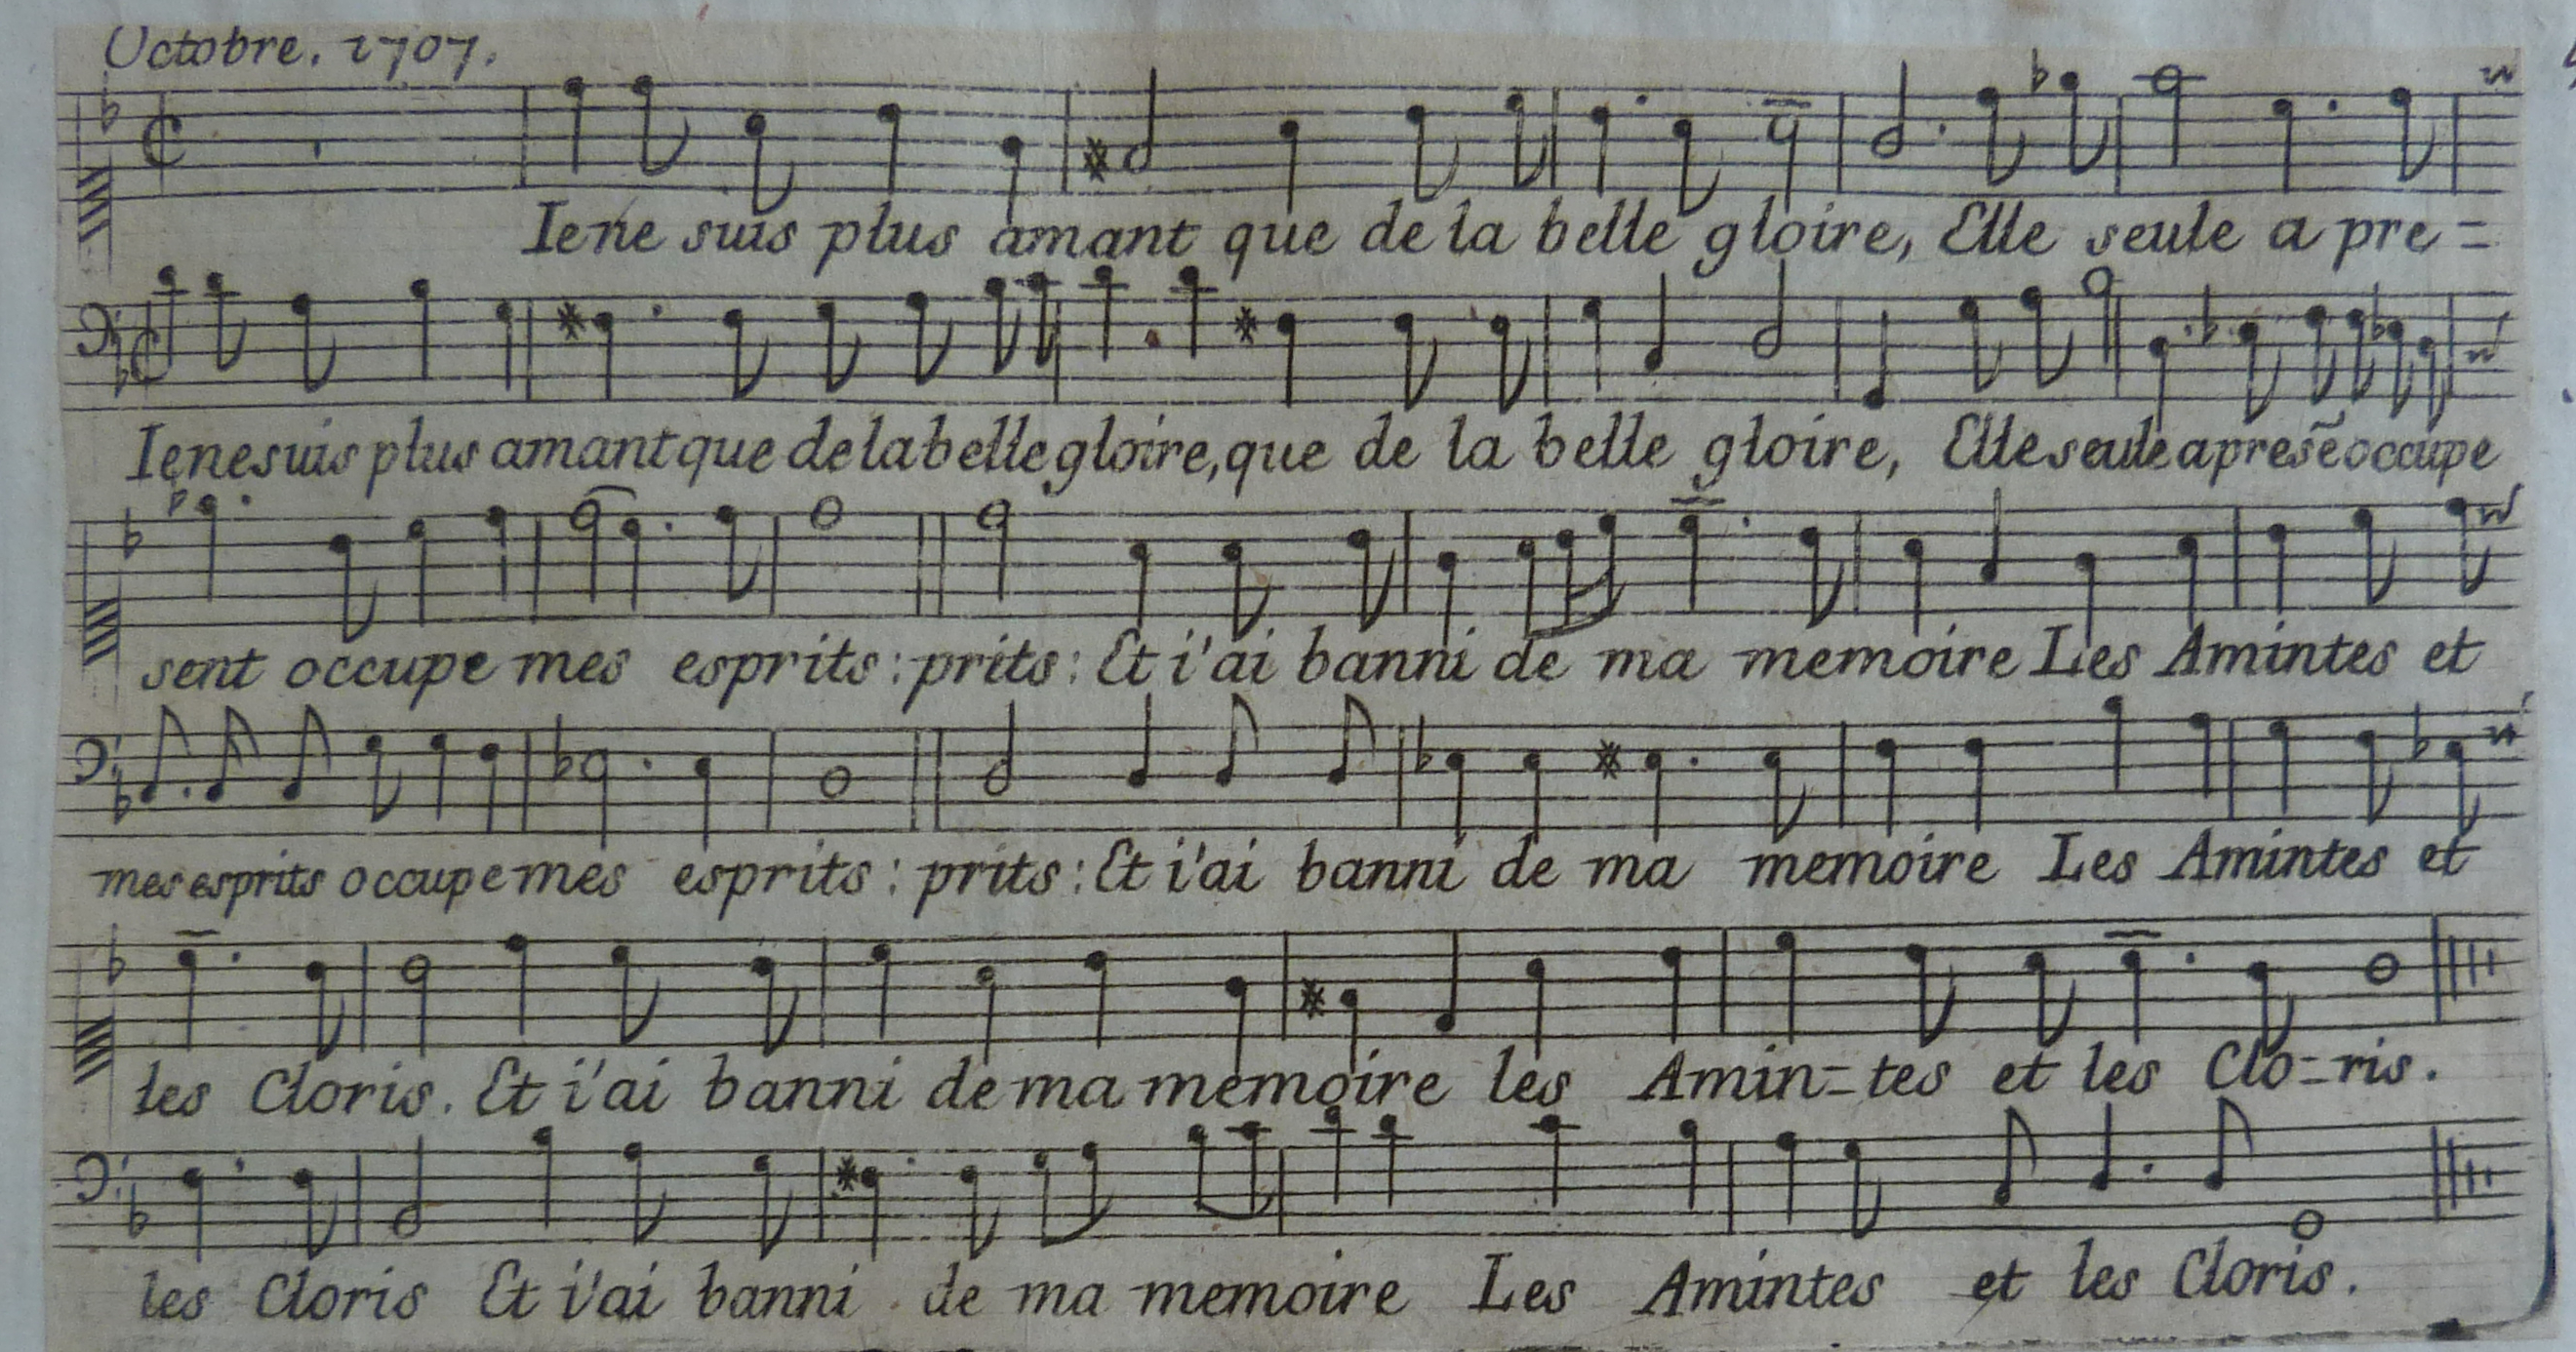 Octobre. 1707.
Ie ne suis plus amant que de la belle gloire, Elle seule a pre=
Ie ne suis plus amant que de la belle gloire, que de la belle gloire, Elle seule a presẽ occupe
sent occupe mes esprits: prits: Et i'ai banni de ma memoire Les Amintes et
mes esprits occupe mes esprits: prits: Et i'ai banni de ma memoire Les Amintes et
les Cloris. Et i'ai banni de ma memoire les Amin=tes et les Clo=ris.
les Cloris Et i'ai banni de ma memoire Les Amintes et les Cloris.